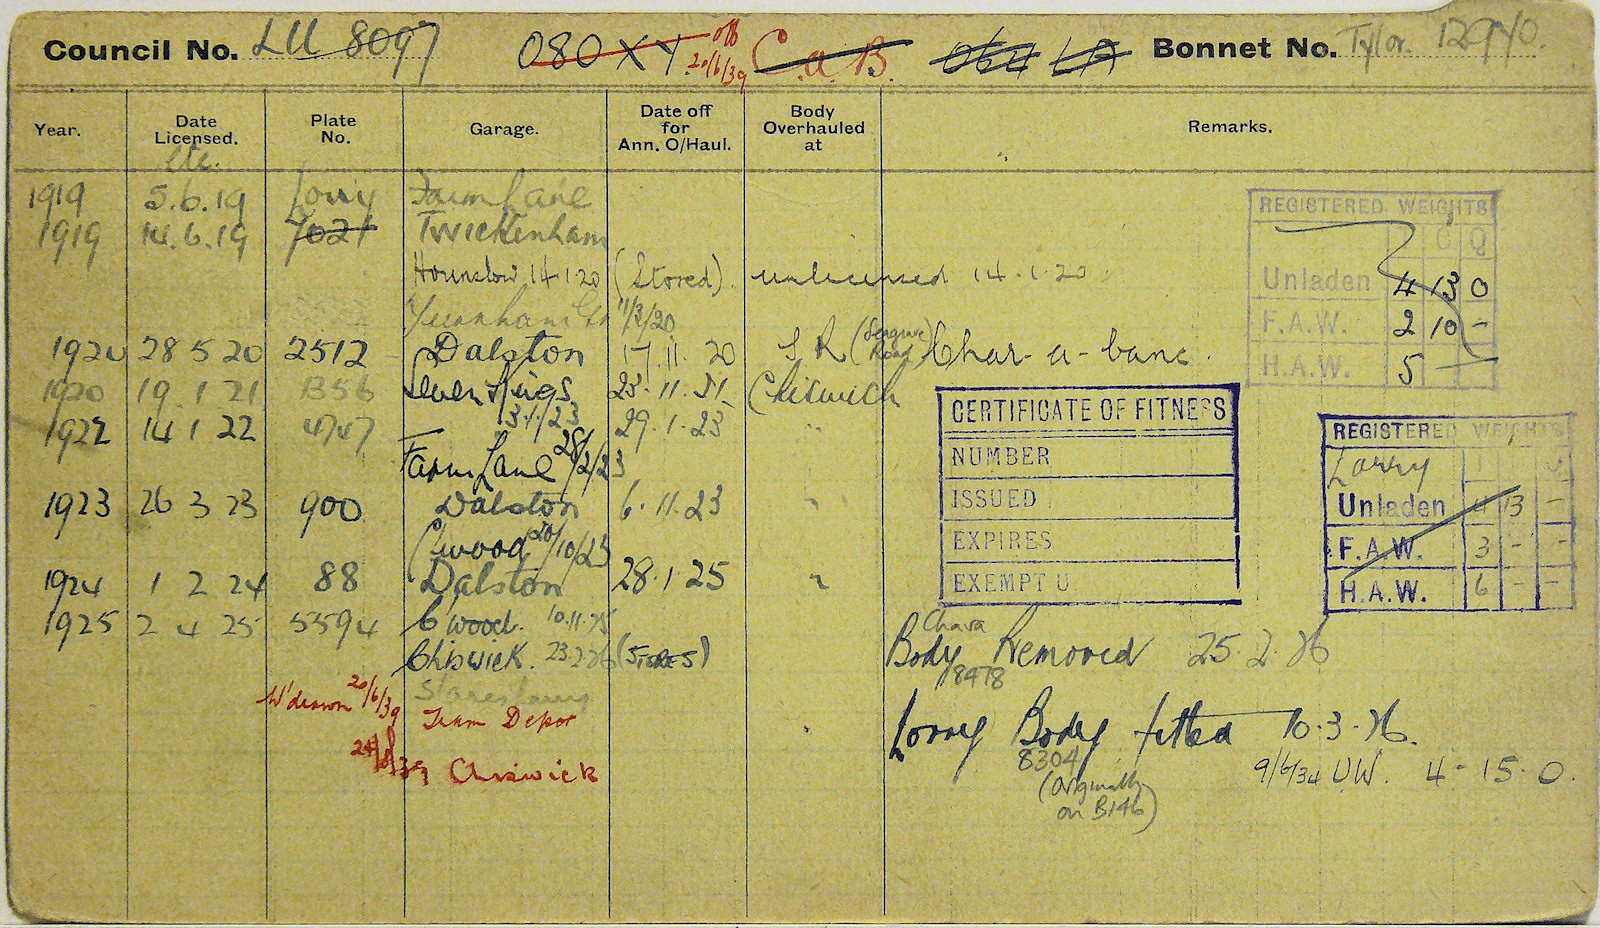 Council No. LU 8097 080 XY off 20/6/39 C.a.B. 064 LA Bonnet No. Tylor. 12940.
Year. Date Licensed. etc. Plate No. Garage. Date off for Ann. O/Haul. Body Overhauled at Remarks.
1919 5.6.19 Lorry Farm Lane
1919 14.6.19 7021 Twickenham
Hounslow 14.1.20 (Stored). unlicensed 14.1.20
11/3/20
1920 28 5 20 2512 Dalston 17.11.20 S R (Seagrave Road) Char-a-banc.
1920 19.1.21 1356 Seven Kings 23.11.21 Chiswick
13/1/23
1922 14 1 22 4747 29.1.23 "
Farm Lane 28/2/23
1923 26 3 23 900 Dalston 6.11.23 "
C'wood 20/10/23
1924 1 2 24 88 Dalston 28.1.25 "
1925 2 4 25 5594 C'wood. 10.11.25
Chiswick. 23.2.26 (STORES)
W'drawn 20/6/39
Tram Depot
Chiswick
REGISTERED WEIGHTS
C Q
Unladen 4 13 0
F.A.W. 2 10 -
H.A.W. 5 -
CERTIFICATE OF FITNESS
NUMBER
ISSUED
EXPIRES
EXEMPT U
REGISTERED WEIGHTS
Lorry
Unladen 4 13 -
F.A.W. 3 - -
H.A.W. 6 - -
Chara
Body Removed 25.2.26
8478
Lorry Body fitted 10.3.26.
8304
(Originally on B146)
9/6/34 U.W. 4-15.0.